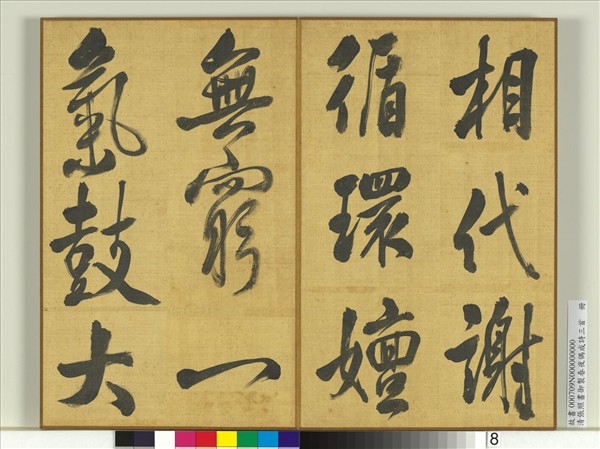 相代謝
循環嬗
無窮一
氣鼓大
故書000709N000000000
清張照書御製春夜偶成詩三首　冊
8